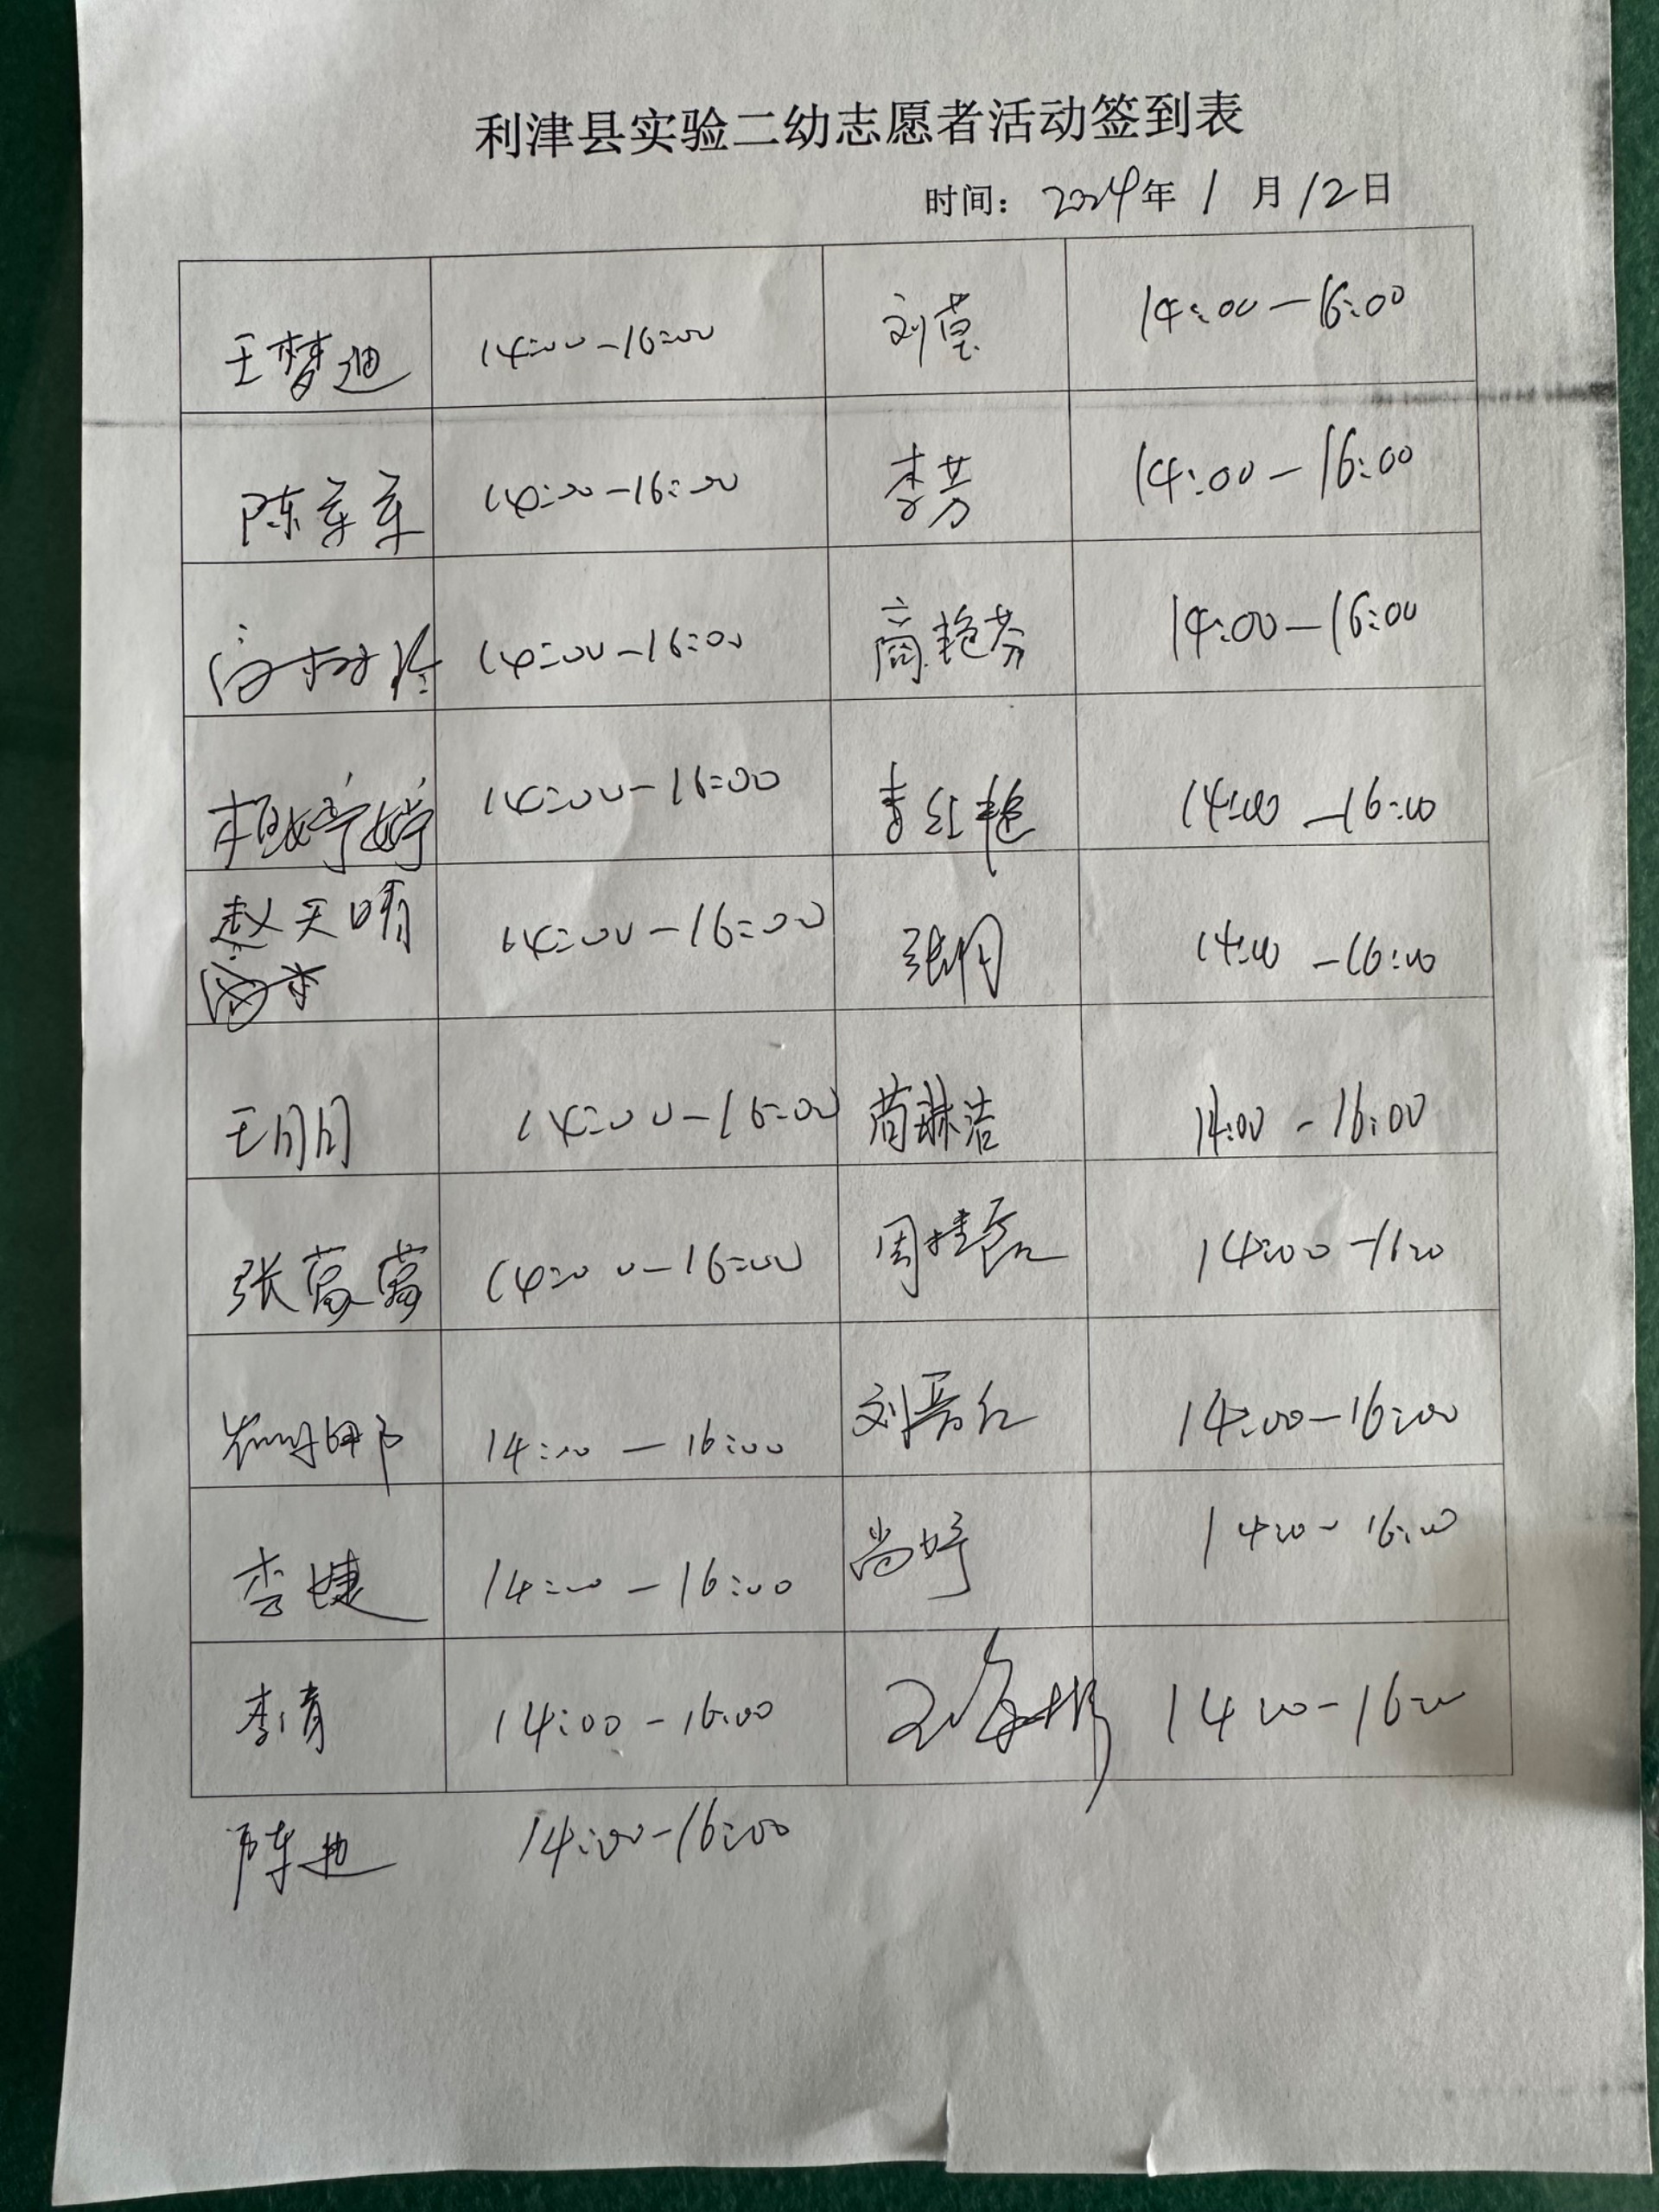 利津县实验二幼志愿者活动签到表
时间: 2024年 1 月 12日
王梦迪 14:00-16:00 刘莹 14:00-16:00
陈军军 14:00-16:00 李芳 14:00-16:00
14:00-16:00 商艳芬 14:00-16:00
14:00-16:00 李红艳 14:00-16:00
赵天晴 14:00-16:00 14:00-16:00
王月月 14:00-16:00 苘琳洁 14:00-16:00
张萬萬 14:00-16:00 14:00-16:00
14:00-16:00 14:00-16:00
李婕 14:00-16:00 尚婷 14:00-16:00
李倩 14:00-16:00 14:00-16:00
陈迪 14:00-16:00